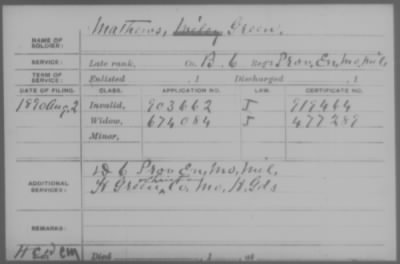 Mathews, Wiley Green.
NAME OF SOLDIER:
SERVICE: Late rank, Co. B. 6 Reg't Prov. En. Mo. Mil.
TERM OF SERVICE: Enlisted , 1 Discharged , 1
DATE OF FILING. CLASS. APPLICATION NO. LAW. CERTIFICATE NO.
1890 Aug 2 Invalid, 903662 J 919464
Widow, 674084 J 477289
Minor,
ADDITIONAL SERVICES: 6 Prov. En. Mo. Mil.
H Green Co. Mo. H. Gds
REMARKS:
Died , 1 , at